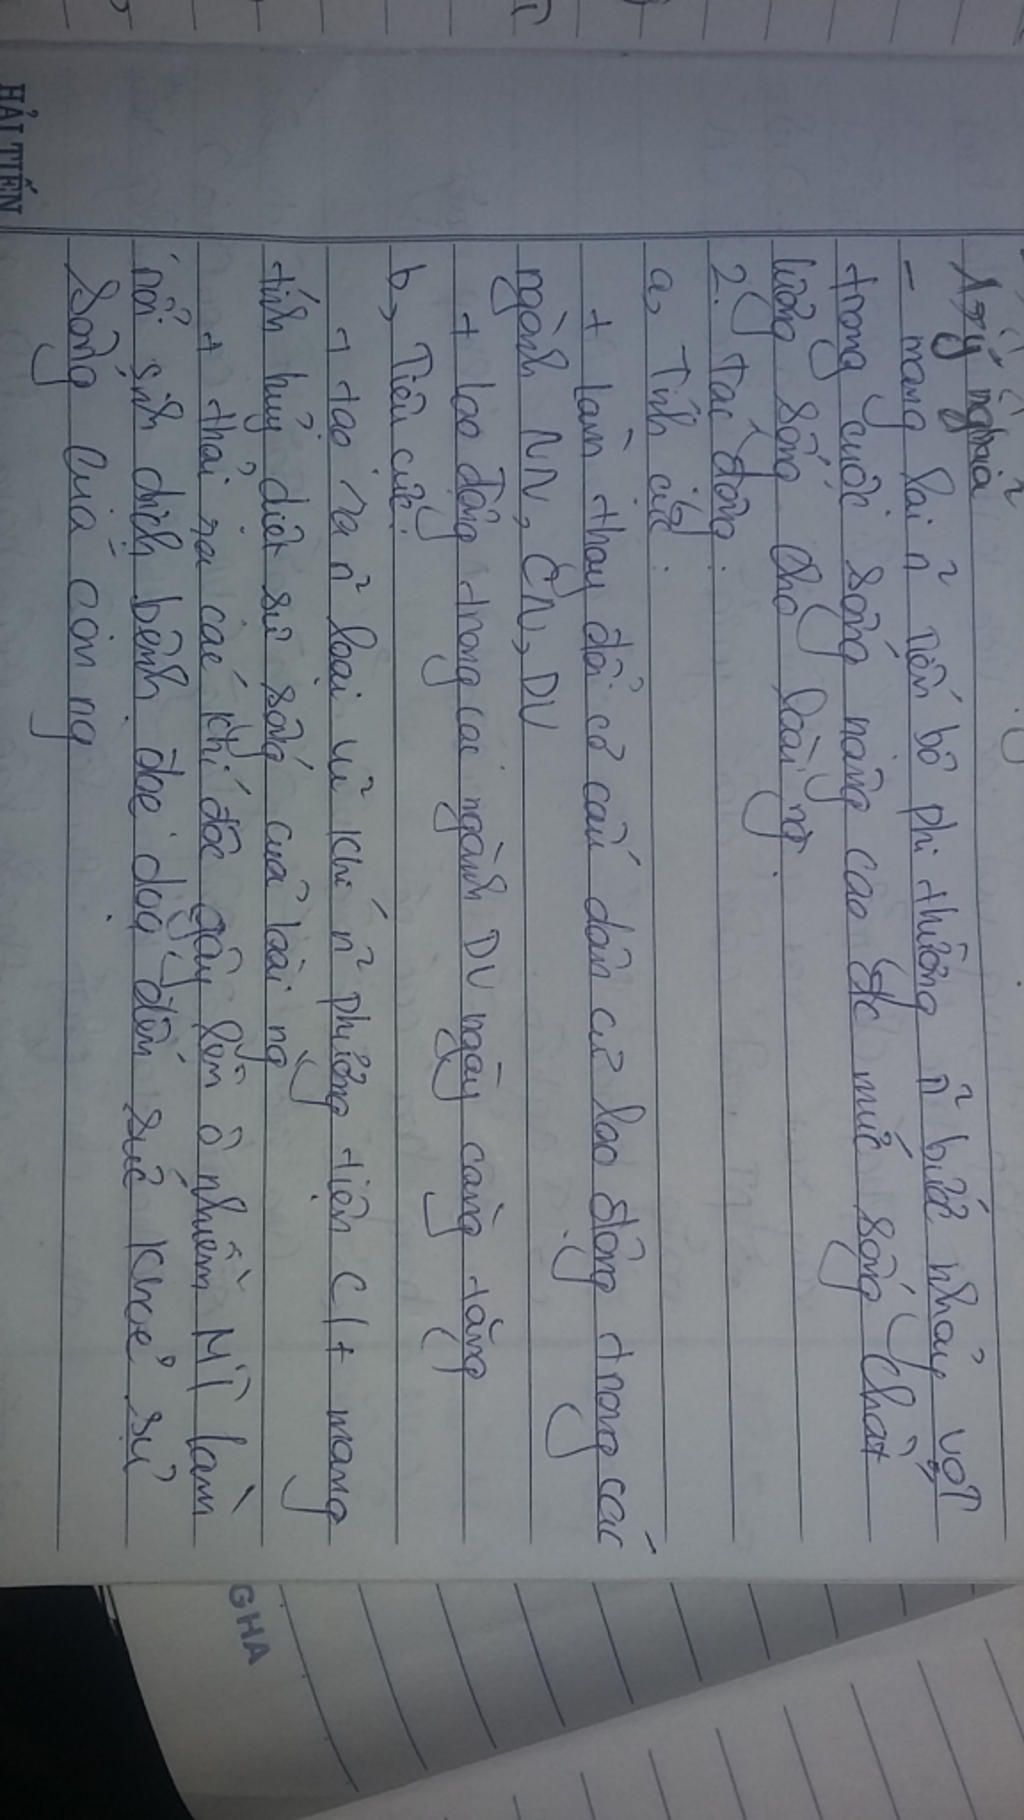 1, ý nghĩa
- mang lại n~ tiến bộ phi thường n~ bước nhảy vọt
trong cuộc sống nâng cao đc mức sống chất
lượng sống cho loài ng.
2. Tác động:
a, Tích cực:
+ làm thay đổi cơ cấu dân cư lao động trong các
ngành NN, CN, DV
+ lao động trong các ngành DV ngày càng tăng
b, Tiêu cực:
+ tạo ra n~ loại vũ khí n~ phương tiện C/t mang
tính hủy diệt sự sống của loài ng
+ thải ra các khí độc gây lên ô nhiễm MT làm
nổi sinh dịch bệnh đoe doạ đến sức khoẻ sự
sống của con ng
HẢI TIẾN
GHA